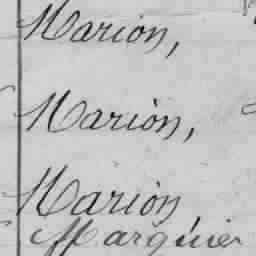 Marion,
Marion,
Marion
Marquier